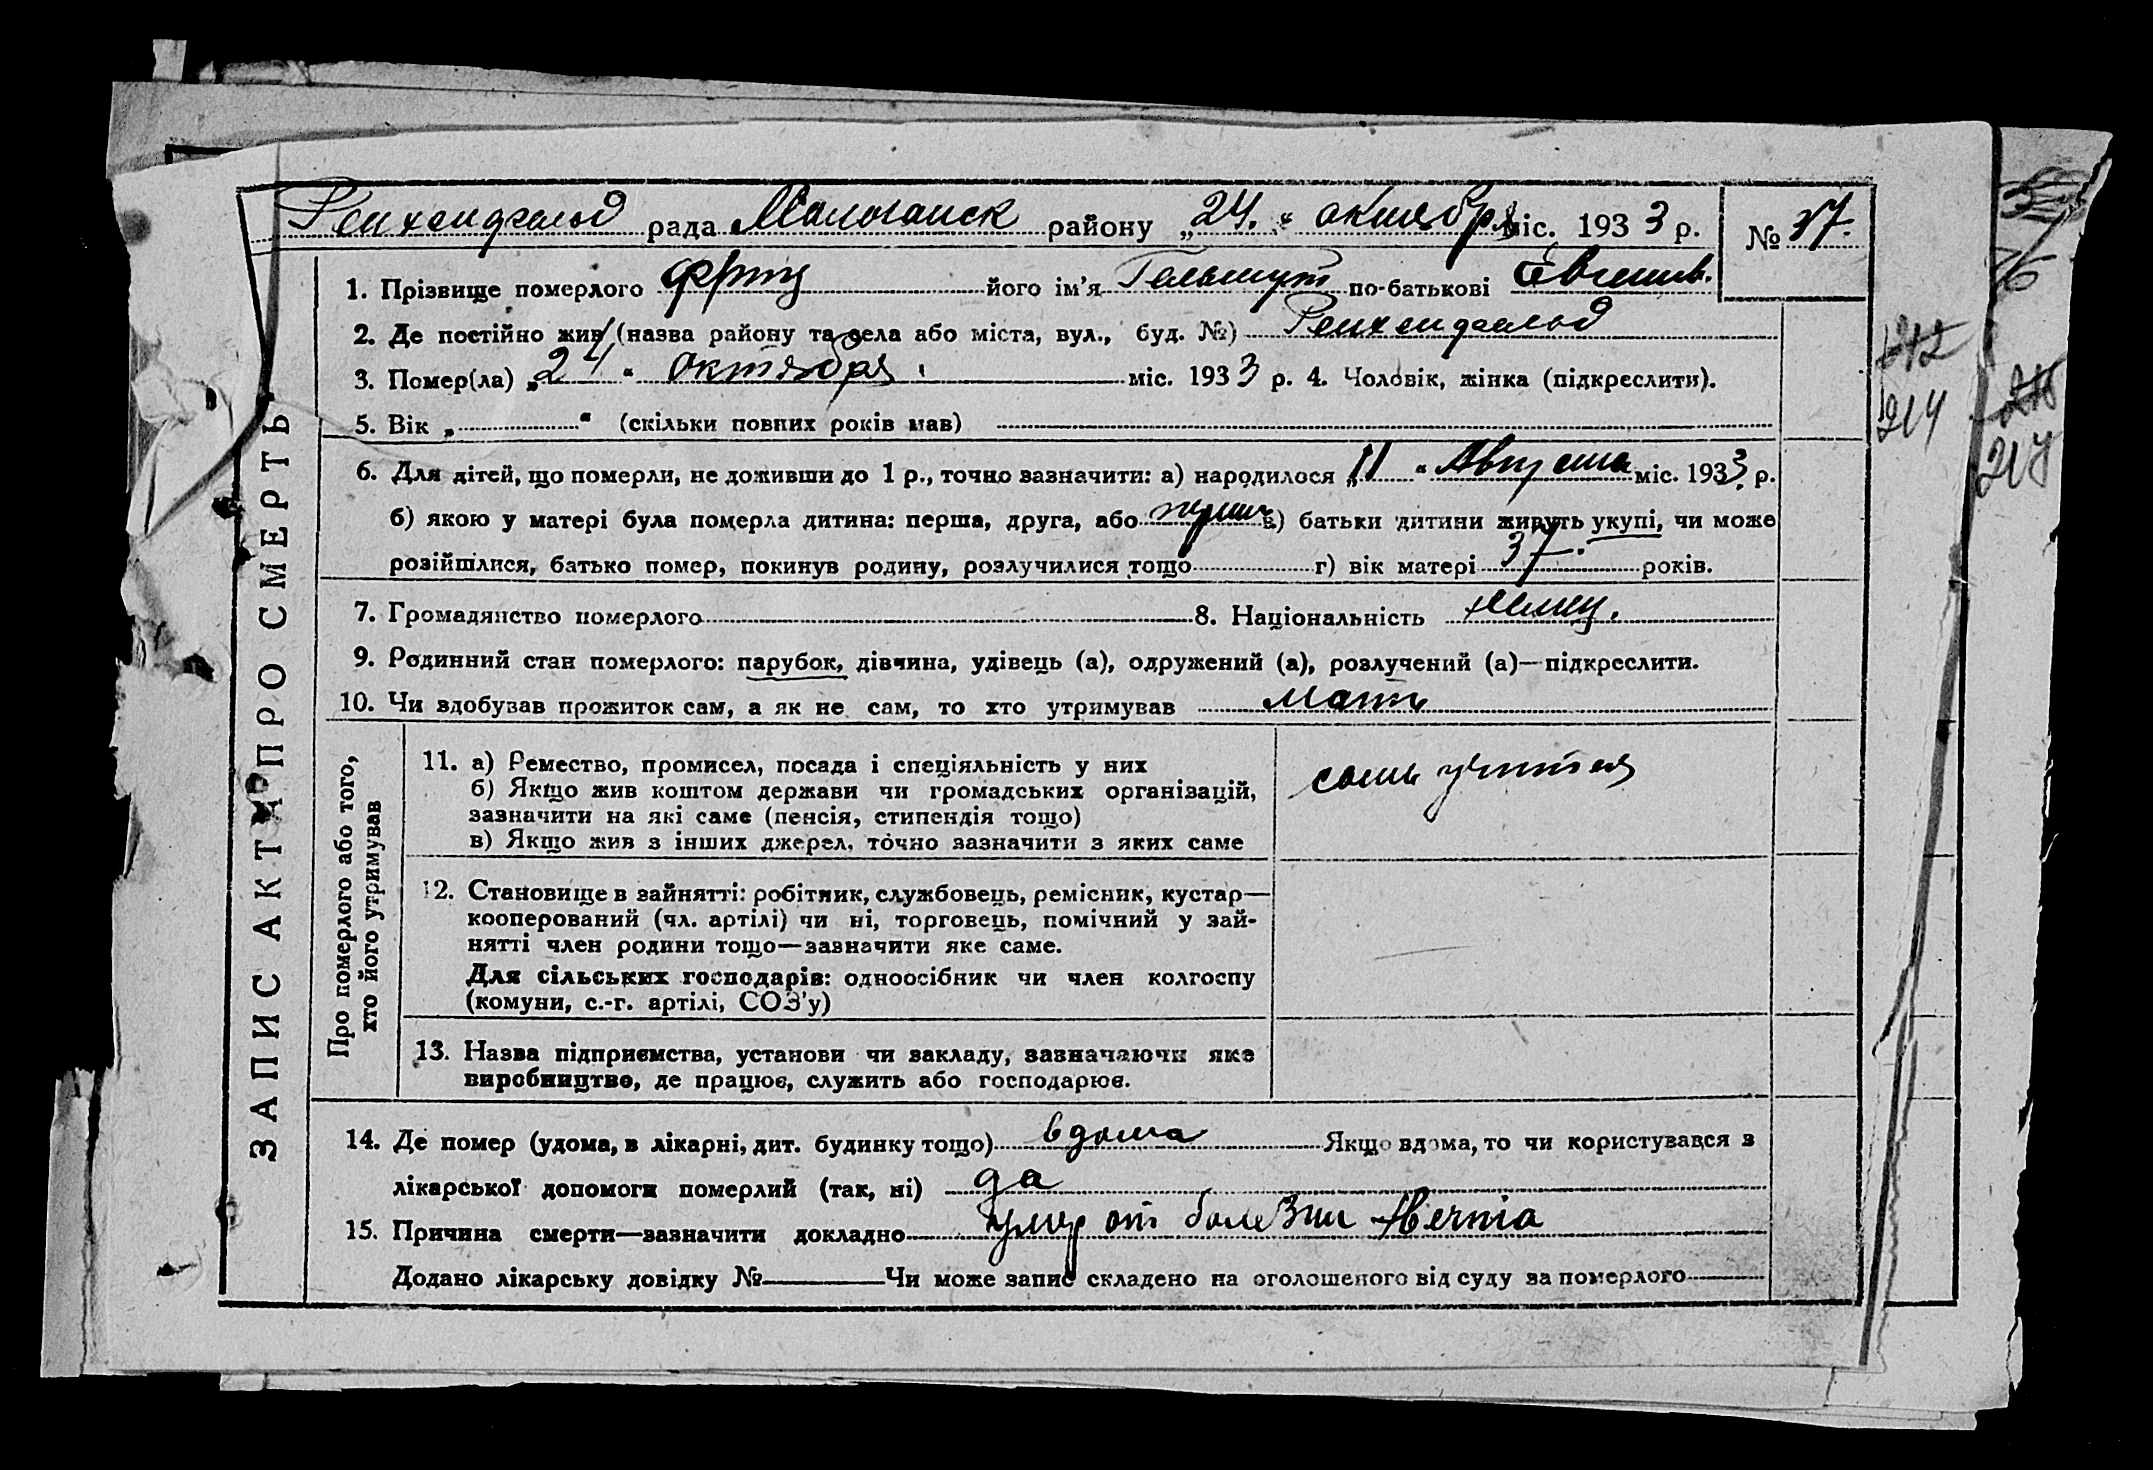 Рейхенфельд рада Молочанск району „24.“ октября міс. 1933 р. № 37.
1. Прізвище померлого Фриц його ім'я Гельмут по-батькові Евгенов.
2. Де постійно жив (назва району та села або міста, вул., буд. №) Рейхенфельд
3. Помер(ла) „24“ октября міс. 1933 р. 4. Чоловік, жінка (підкреслити).
5. Вік „ “ (скільки повних років мав)
6. Для дітей, що померли, не доживши до 1 р., точно зазначити: а) народилося „11“ Августа міс. 1933 р.
б) якою у матері була померла дитина: перша, друга, або перш. в) батьки дитини живуть укупі, чи може
розійшлися, батько помер, покинув родину, розлучилися тощо г) вік матері 37. років.
7. Громадянство померлого 8. Національність немец.
9. Родинний стан померлого: парубок, дівчина, удівець (а), одружений (а), розлучений (а)—підкреслити.
10. Чи здобував прожиток сам, а як не сам, то хто утримував мать
ЗАПИС АКТА ПРО СМЕРТЬ
Про померлого або того,
хто його утримував
11. а) Ремество, промисел, посада і спеціяльність у них
б) Якщо жив коштом держави чи громадських організацій,
зазначити на які саме (пенсія, стипендія тощо)
в) Якщо жив з інших джерел, точно зазначити з яких саме
учителя
12. Становище в зайнятті: робітник, службовець, ремісник, кустар—
кооперований (чл. артілі) чи ні, торговець, помічний у зай-
нятті член родини тощо—зазначити яке саме.
Для сільських господарів: одноосібник чи член колгоспу
(комуни, с.-г. артілі, СОЗ'у)
13. Назва підприємства, установи чи закладу, зазначаючи яке
виробництво, де працює, служить або господарює.
14. Де помер (удома, в лікарні, дит. будинку тощо) вдома Якщо вдома, то чи користувався з
лікарської допомоги померлий (так, ні) да
15. Причина смерти—зазначити докладно умер от болезни
Додано лікарську довідку № Чи може запис складено на оголошеного від суду за померлого
214
217